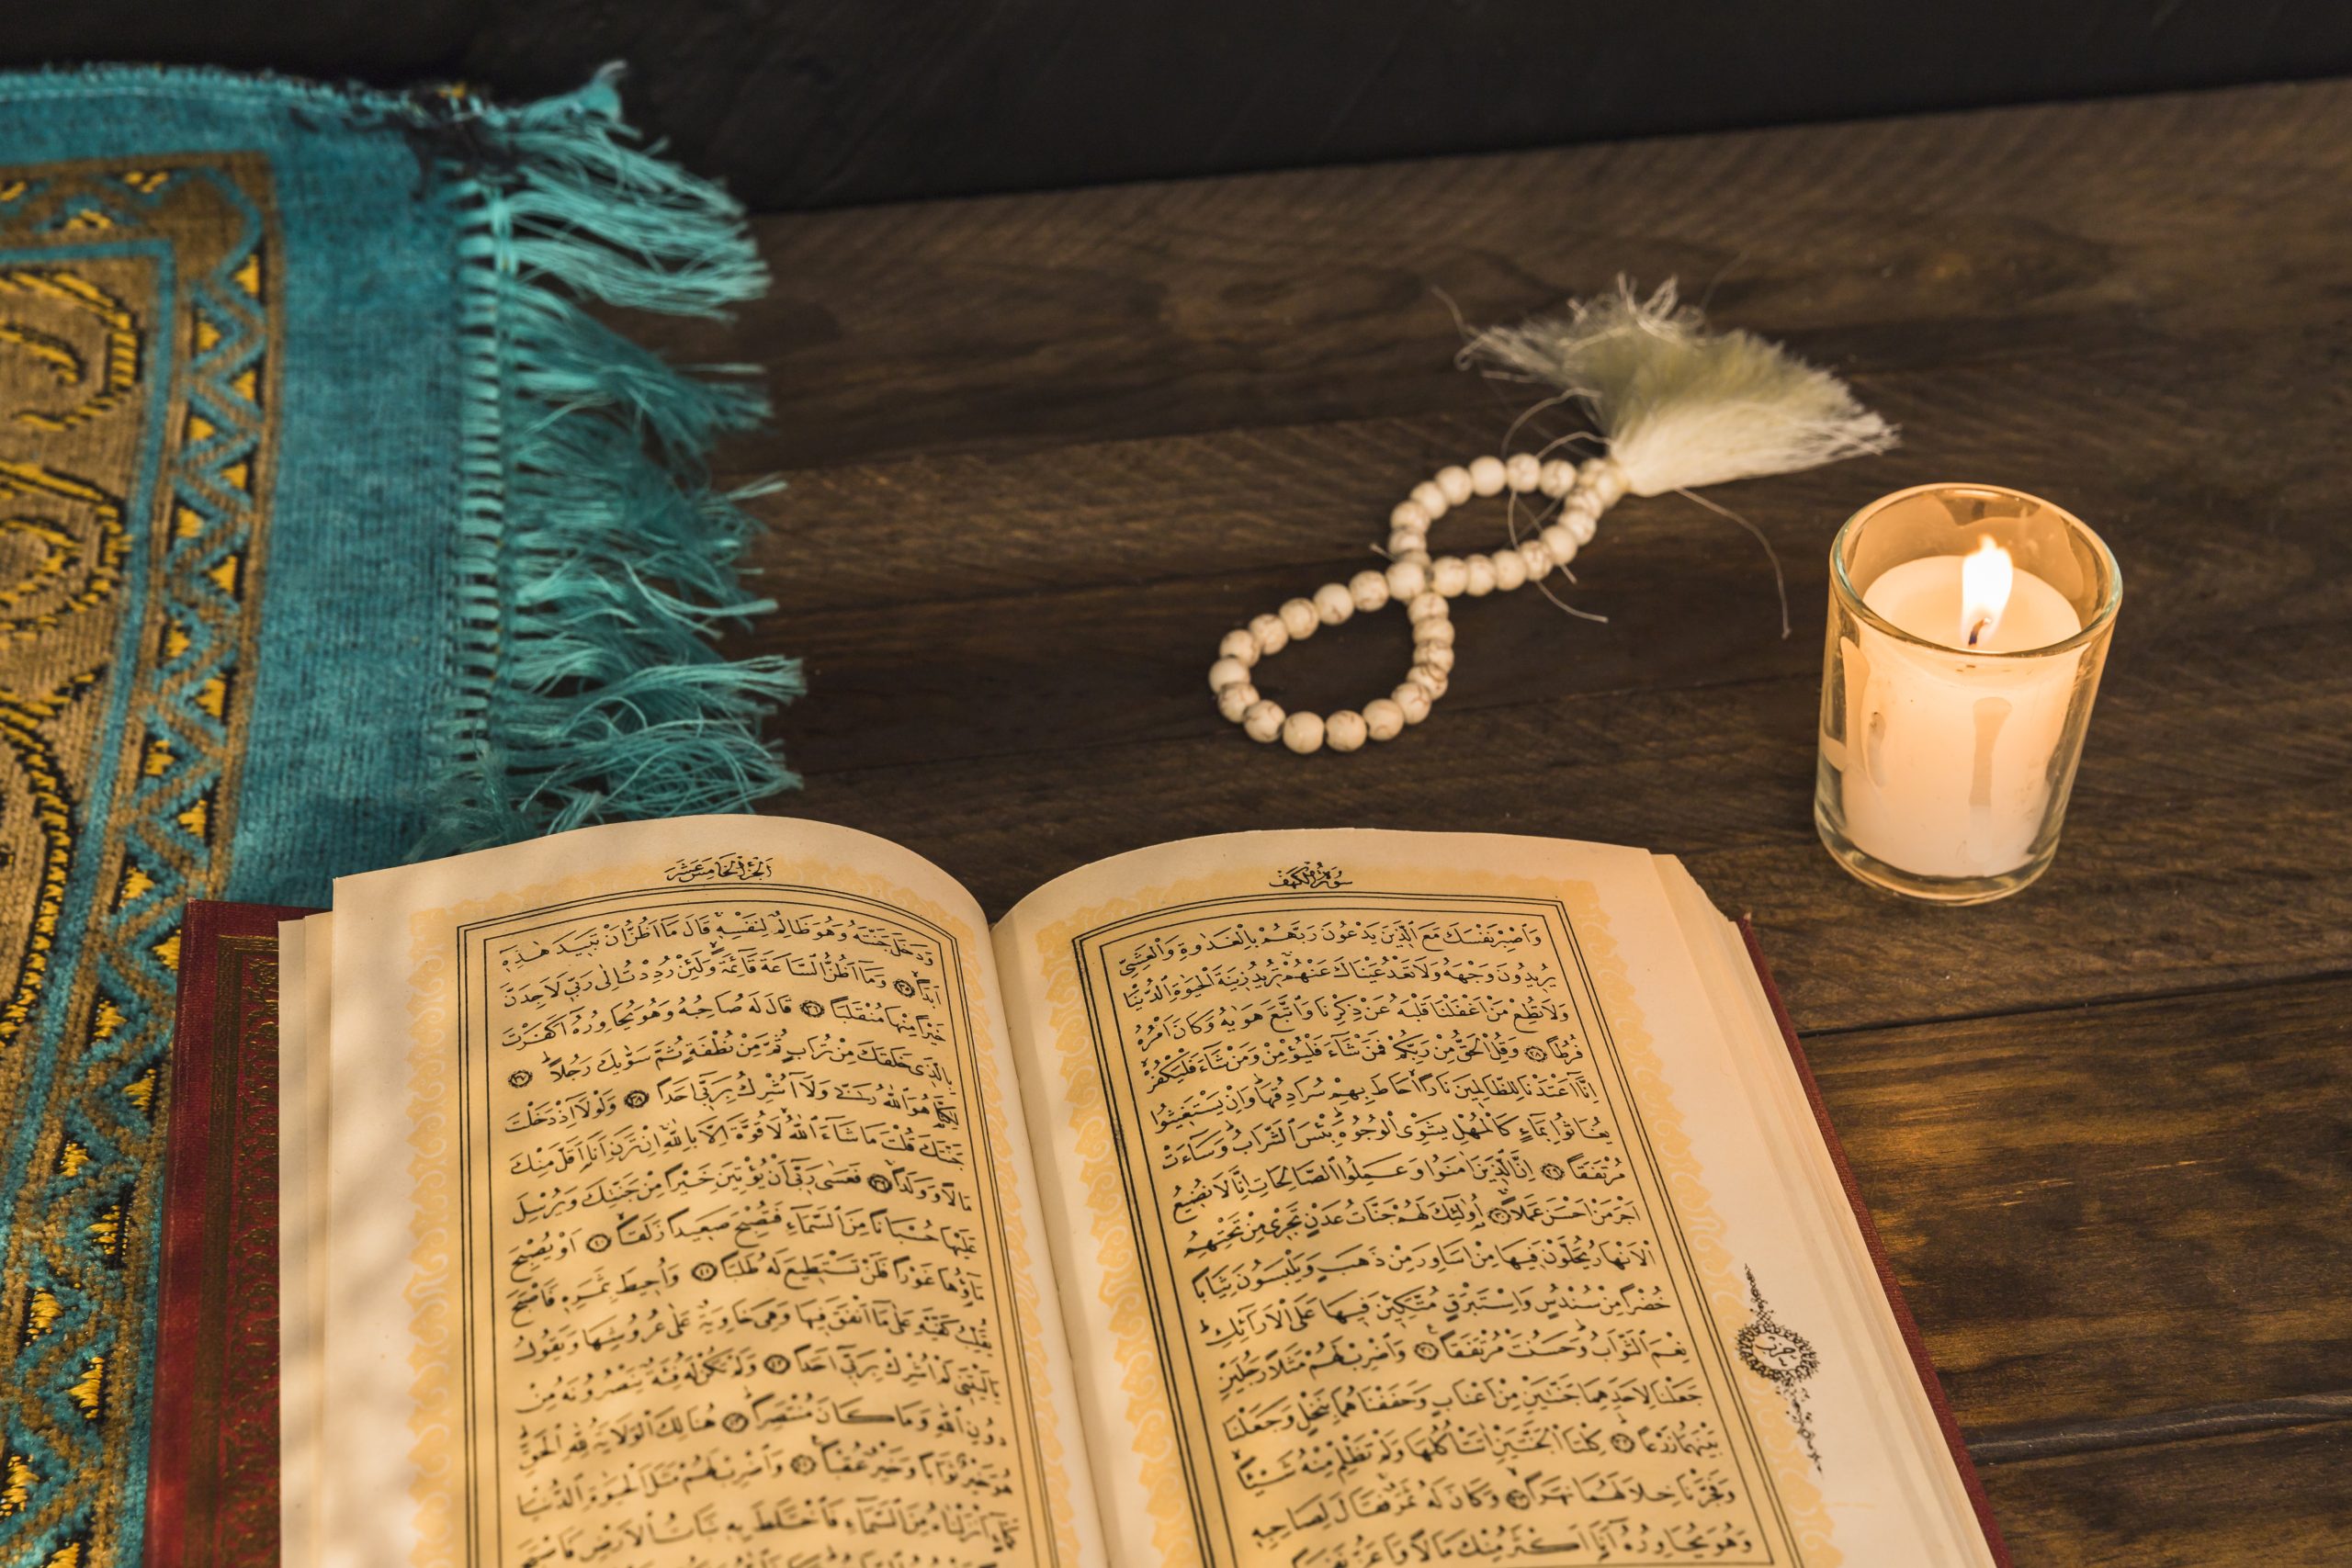 سورة الكهف
وَاصْبِرْ نَفْسَكَ مَعَ الَّذِينَ يَدْعُونَ رَبَّهُمْ بِالْغَدٰوةِ وَالْعَشِيِّ
يُرِيدُونَ وَجْهَهُ وَلَا تَعْدُ عَيْنَاكَ عَنْهُمْ تُرِيدُ زِينَةَ الْحَيٰوةِ الدُّنْيَا
وَلَا تُطِعْ مَنْ اَغْفَلْنَا قَلْبَهُ عَنْ ذِكْرِنَا وَاتَّبَعَ هَوٰيهُ وَكَانَ اَمْرُهُ
فُرُطًا ٢٨ وَقُلِ الْحَقُّ مِنْ رَبِّكُمْ فَمَنْ شَاءَ فَلْيُؤْمِنْ وَمَنْ شَاءَ فَلْيَكْفُرْ
اِنَّا اَعْتَدْنَا لِلظَّالِمِينَ نَارًا اَحَاطَ بِهِمْ سُرَادِقُهَا وَاِنْ يَسْتَغِيثُوا
يُغَاثُوا بِمَاءٍ كَالْمُهْلِ يَشْوِي الْوُجُوهَ بِئْسَ الشَّرَابُ وَسَاءَتْ
مُرْتَفَقًا ٢٩ اِنَّ الَّذِينَ اٰمَنُوا وَعَمِلُوا الصَّالِحَاتِ اِنَّا لَا نُضِيعُ
اَجْرَ مَنْ اَحْسَنَ عَمَلًا ٣٠ اُولٰئِكَ لَهُمْ جَنَّاتُ عَدْنٍ تَجْرِي مِنْ تَحْتِهِمُ
الْاَنْهَارُ يُحَلَّوْنَ فِيهَا مِنْ اَسَاوِرَ مِنْ ذَهَبٍ وَيَلْبَسُونَ ثِيَابًا
خُضْرًا مِنْ سُنْدُسٍ وَاِسْتَبْرَقٍ مُتَّكِئِينَ فِيهَا عَلَى الْاَرَائِكِ
نِعْمَ الثَّوَابُ وَحَسُنَتْ مُرْتَفَقًا ٣١ وَاضْرِبْ لَهُمْ مَثَلًا رَجُلَيْنِ
جَعَلْنَا لِاَحَدِهِمَا جَنَّتَيْنِ مِنْ اَعْنَابٍ وَحَفَفْنَاهُمَا بِنَخْلٍ وَجَعَلْنَا
بَيْنَهُمَا زَرْعًا ٣٢ كِلْتَا الْجَنَّتَيْنِ اٰتَتْ اُكُلَهَا وَلَمْ تَظْلِمْ مِنْهُ شَيْئًا
وَفَجَّرْنَا خِلَالَهُمَا نَهَرًا ٣٣ وَكَانَ لَهُ ثَمَرٌ فَقَالَ لِصَاحِبِهِ
وَهُوَ يُحَاوِرُهُ اَنَا اَكْثَرُ مِنْكَ مَالًا وَاَعَزُّ نَفَرًا
حزب
الجزء الخامس عشر
وَدَخَلَ جَنَّتَهُ وَهُوَ ظَالِمٌ لِنَفْسِهِ قَالَ مَا اَظُنُّ اَنْ تَبِيدَ هٰذِهِ
اَبَدًا ٣٥ وَمَا اَظُنُّ السَّاعَةَ قَائِمَةً وَلَئِنْ رُدِدْتُ اِلٰى رَبِّي لَاَجِدَنَّ
خَيْرًا مِنْهَا مُنْقَلَبًا ٣٦ قَالَ لَهُ صَاحِبُهُ وَهُوَ يُحَاوِرُهُ اَكَفَرْتَ
بِالَّذِي خَلَقَكَ مِنْ تُرَابٍ ثُمَّ مِنْ نُطْفَةٍ ثُمَّ سَوّٰيكَ رَجُلًا ٣٧
لٰكِنَّا هُوَ اللّٰهُ رَبِّي وَلَا اُشْرِكُ بِرَبِّي اَحَدًا ٣٨ وَلَوْلَا اِذْ دَخَلْتَ
جَنَّتَكَ قُلْتَ مَا شَاءَ اللّٰهُ لَا قُوَّةَ اِلَّا بِاللّٰهِ اِنْ تَرَنِ اَنَا اَقَلَّ مِنْكَ
مَالًا وَوَلَدًا ٣٩ فَعَسٰى رَبِّي اَنْ يُؤْتِيَنِ خَيْرًا مِنْ جَنَّتِكَ وَيُرْسِلَ
عَلَيْهَا حُسْبَانًا مِنَ السَّمَاءِ فَتُصْبِحَ صَعِيدًا زَلَقًا ٤٠ اَوْ يُصْبِحَ
مَاؤُهَا غَوْرًا فَلَنْ تَسْتَطِيعَ لَهُ طَلَبًا ٤١ وَاُحِيطَ بِثَمَرِهِ فَاَصْبَحَ
يُقَلِّبُ كَفَّيْهِ عَلٰى مَا اَنْفَقَ فِيهَا وَهِيَ خَاوِيَةٌ عَلٰى عُرُوشِهَا وَيَقُولُ
يَا لَيْتَنِي لَمْ اُشْرِكْ بِرَبِّي اَحَدًا ٤٢ وَلَمْ تَكُنْ لَهُ فِئَةٌ يَنْصُرُونَهُ مِنْ
دُونِ اللّٰهِ وَمَا كَانَ مُنْتَصِرًا ٤٣ هُنَالِكَ الْوَلَايَةُ لِلّٰهِ الْحَقِّ
هُوَ خَيْرٌ ثَوَابًا وَخَيْرٌ عُقْبًا ٤٤ وَاضْرِبْ لَهُمْ مَثَلَ الْحَيٰوةِ الدُّنْيَا
كَمَاءٍ اَنْزَلْنَاهُ مِنَ السَّمَاءِ فَاخْتَلَطَ بِهِ نَبَاتُ الْاَرْضِ فَاَصْبَحَ